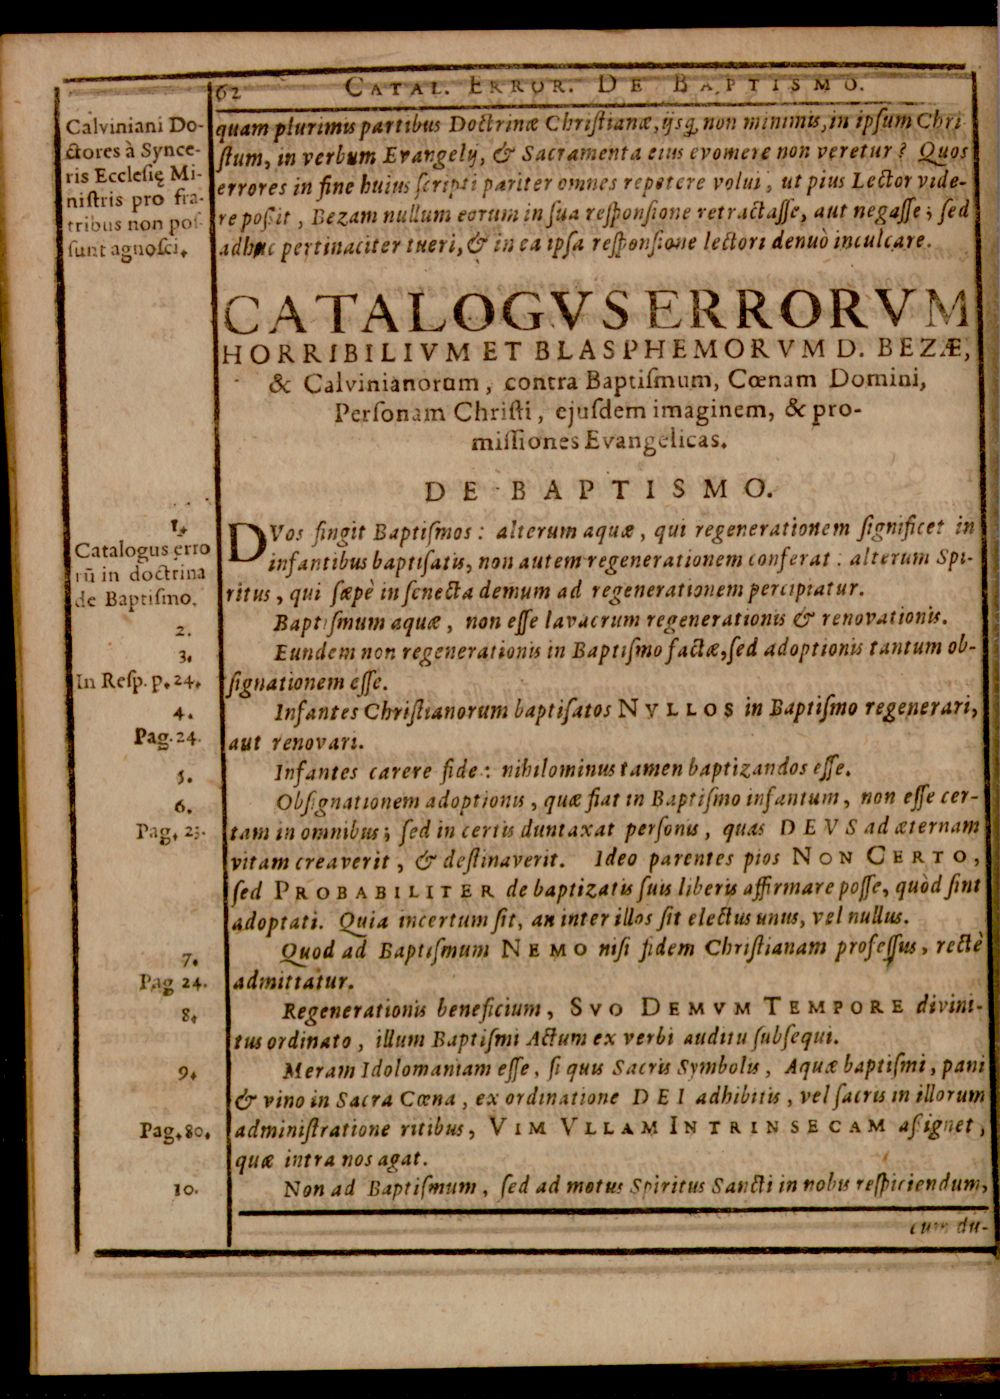 62 CATAL. ERROR. DE BAPTISMO.
Calviniani Do-
ctores à Synce-
ris Ecclesię Mi-
nistris pro fra-
tribus non pos-
sunt agnosci.
quam plurimis partibus Doctrinæ Christianæ, ijsq́, non minimis, in ipsum Chri
stum, in verbum Evangelij, & Sacramenta eius evomere non veretur? Quos
errores in fine huius scripti pariter omnes repetere volui, ut pius Lector vide-
re possit, Bezam nullum eorum in sua responsione retractasse, aut negasse; sed
adhuc pertinaciter tueri, & in ea ipsa responsione lectori denuò inculcare.
CATALOGVS ERRORVM
HORRIBILIVM ET BLASPHEMORVM D. BEZÆ,
& Calvinianorum, contra Baptismum, Cœnam Domini,
Personam Christi, ejusdem imaginem, & pro-
missiones Evangelicas.
DE BAPTISMO.
1.
Catalogus erro
rū in doctrina
de Baptismo.
DVos fingit Baptismos: alterum aquæ, qui regenerationem significet in
infantibus baptisatis, non autem regenerationem conferat: alterum Spi-
ritus, qui sæpè in senecta demum ad regenerationem percipiatur.
2.
Baptismum aquæ, non esse lavacrum regenerationis & renovationis.
3.
Eundem non regenerationis in Baptismo factæ, sed adoptionis tantum ob-
In Resp. p. 24.
signationem esse.
4.
Infantes Christianorum baptisatos NVLLOS in Baptismo regenerari,
Pag. 24.
aut renovari.
5.
Infantes carere fide: nihilominus tamen baptizandos esse.
6.
Obsignationem adoptionis, quæ fiat in Baptismo infantum, non esse cer-
Pag. 23.
tam in omnibus; sed in certis duntaxat personis, quas DEVS ad æternam
vitam creaverit, & destinaverit. Ideo parentes pios NON CERTO,
sed PROBABILITER de baptizatis suis liberis affirmare posse, quòd sint
adoptati. Quia incertum sit, an inter illos sit electus unus, vel nullus.
7.
Quod ad Baptismum NEMO nisi fidem Christianam professus, rectè
Pag 24.
admittatur.
8.
Regenerationis beneficium, SVO DEMVM TEMPORE divini-
tus ordinato, illum Baptismi Actum ex verbi auditu subsequi.
9.
Meram Idolomaniam esse, si quis Sacris Symbolis, Aquæ baptismi, pani
& vino in Sacra Cœna, ex ordinatione DEI adhibitis, vel sacris in illorum
Pag. 80.
administratione ritibus, VIM VLLAM INTRINSECAM assignet,
quæ intra nos agat.
10.
Non ad Baptismum, sed ad motus Spiritus Sancti in nobis respiciendum,
cum du-